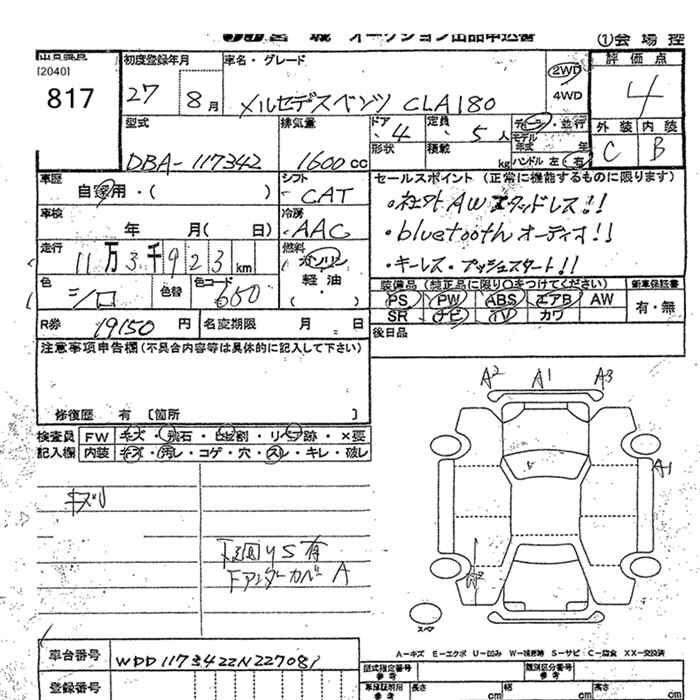 オークション出品申込書 ①会場控
[2040]
817
初度登録年月 車名・グレード
27 8月 メルセデスベンツ CLA180
2WD
4WD
評価点
4
外装 内装
C B
型式 排気量 ドア 4 定員 5人
DBA-117342 1600cc 形状 積載 kg
ディーラー・並行
モデル年式 年
ハンドル 左 右
車歴 自家用・( ) シフト CAT
車検 年 月( 日) 冷房 AAC
走行 11万3千923km 燃料 ガソリン
軽油
色 シロ 色替 色コード 650
セールスポイント (正常に機能するものに限ります)
・社外AW スタッドレス!!
・bluetoothオーディオ!!
・キーレス・プッシュスタート!!
装備品 (純正品に限り○をつけてください) 新車保証書
PS PW ABS エアB AW 有・無
SR ナビ TV カワ
R券 19150円 名変期限 月 日 後日品
注意事項申告欄(不具合内容等は具体的に記入して下さい)
修復歴 有 〔箇所 〕
検査員 FW キズ・飛石・ヒビ割・リペア跡・×要
記入欄 内装 キズ・汚レ・コゲ・穴・スレ・キレ・破レ
A2 A1 A3
A1
キズリ
下廻りS有
FアンダーカバーA
スペア
A-キズ E-エクボ U-凹み W-補修跡 S-サビ C-腐食 XX-交換済
車台番号 WDD1173422N227081
登録番号
型式指定番号 類別区分番号
長さ cm 幅 cm 高さ cm